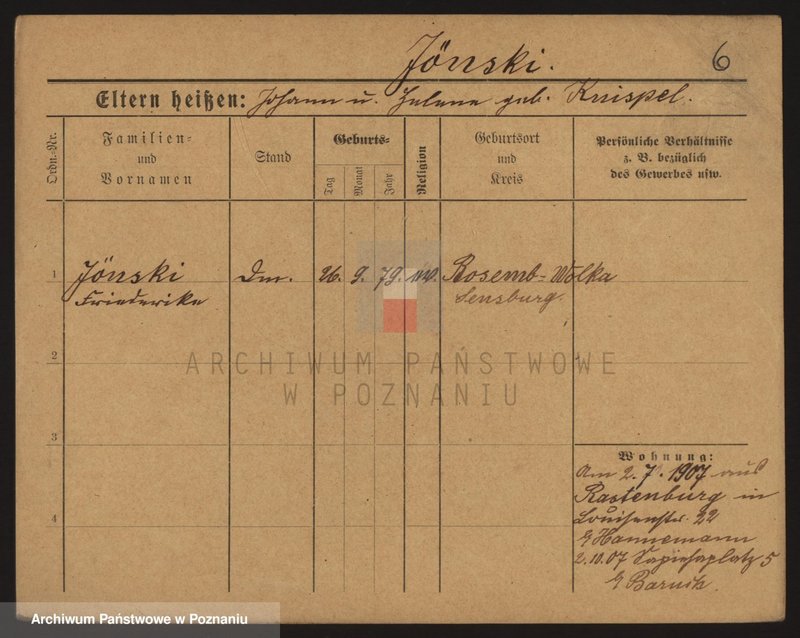 Jönski.
6
Eltern heißen: Johann u. Helene geb. Knispel.
Ordn.-Nr.
Familien-
und
Vornamen
Stand
Geburts-
Tag
Monat
Jahr
Religion
Geburtsort
und
Kreis
Persönliche Verhältnisse
z. B. bezüglich
des Gewerbes usw.
1
Jönski Dm. 26. 9. 79. Rosemb- Wolka
Friederike Sensburg.
2
ARCHIWUM PAŃSTWOWE
W POZNANIU
3
Wohnung:
Am 2. 7. 1907 aus
Rastenburg in
4
Louisenstr. 22
Hannemann
2.10.07 Sapiehaplatz 5
Archiwum Państwowe w Poznaniu